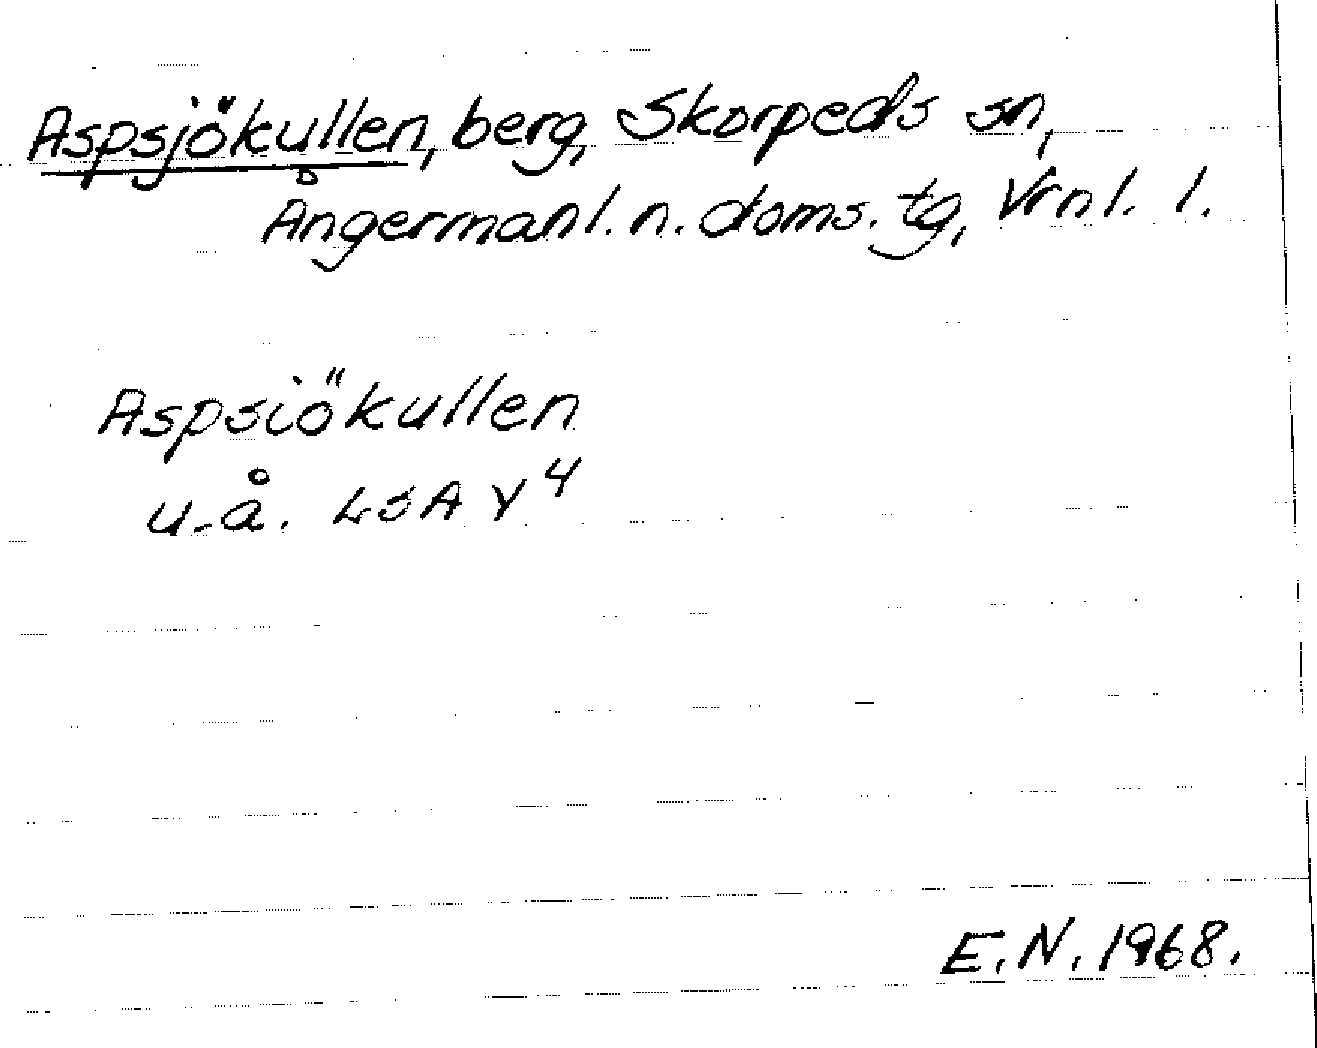 Aspsjökullen, berg, Skorpeds sn,
Ångermanl. n. doms. tg, Vrnl. l.
Aspsiökullen
u.å. LSA Y4
E.N. 1968.